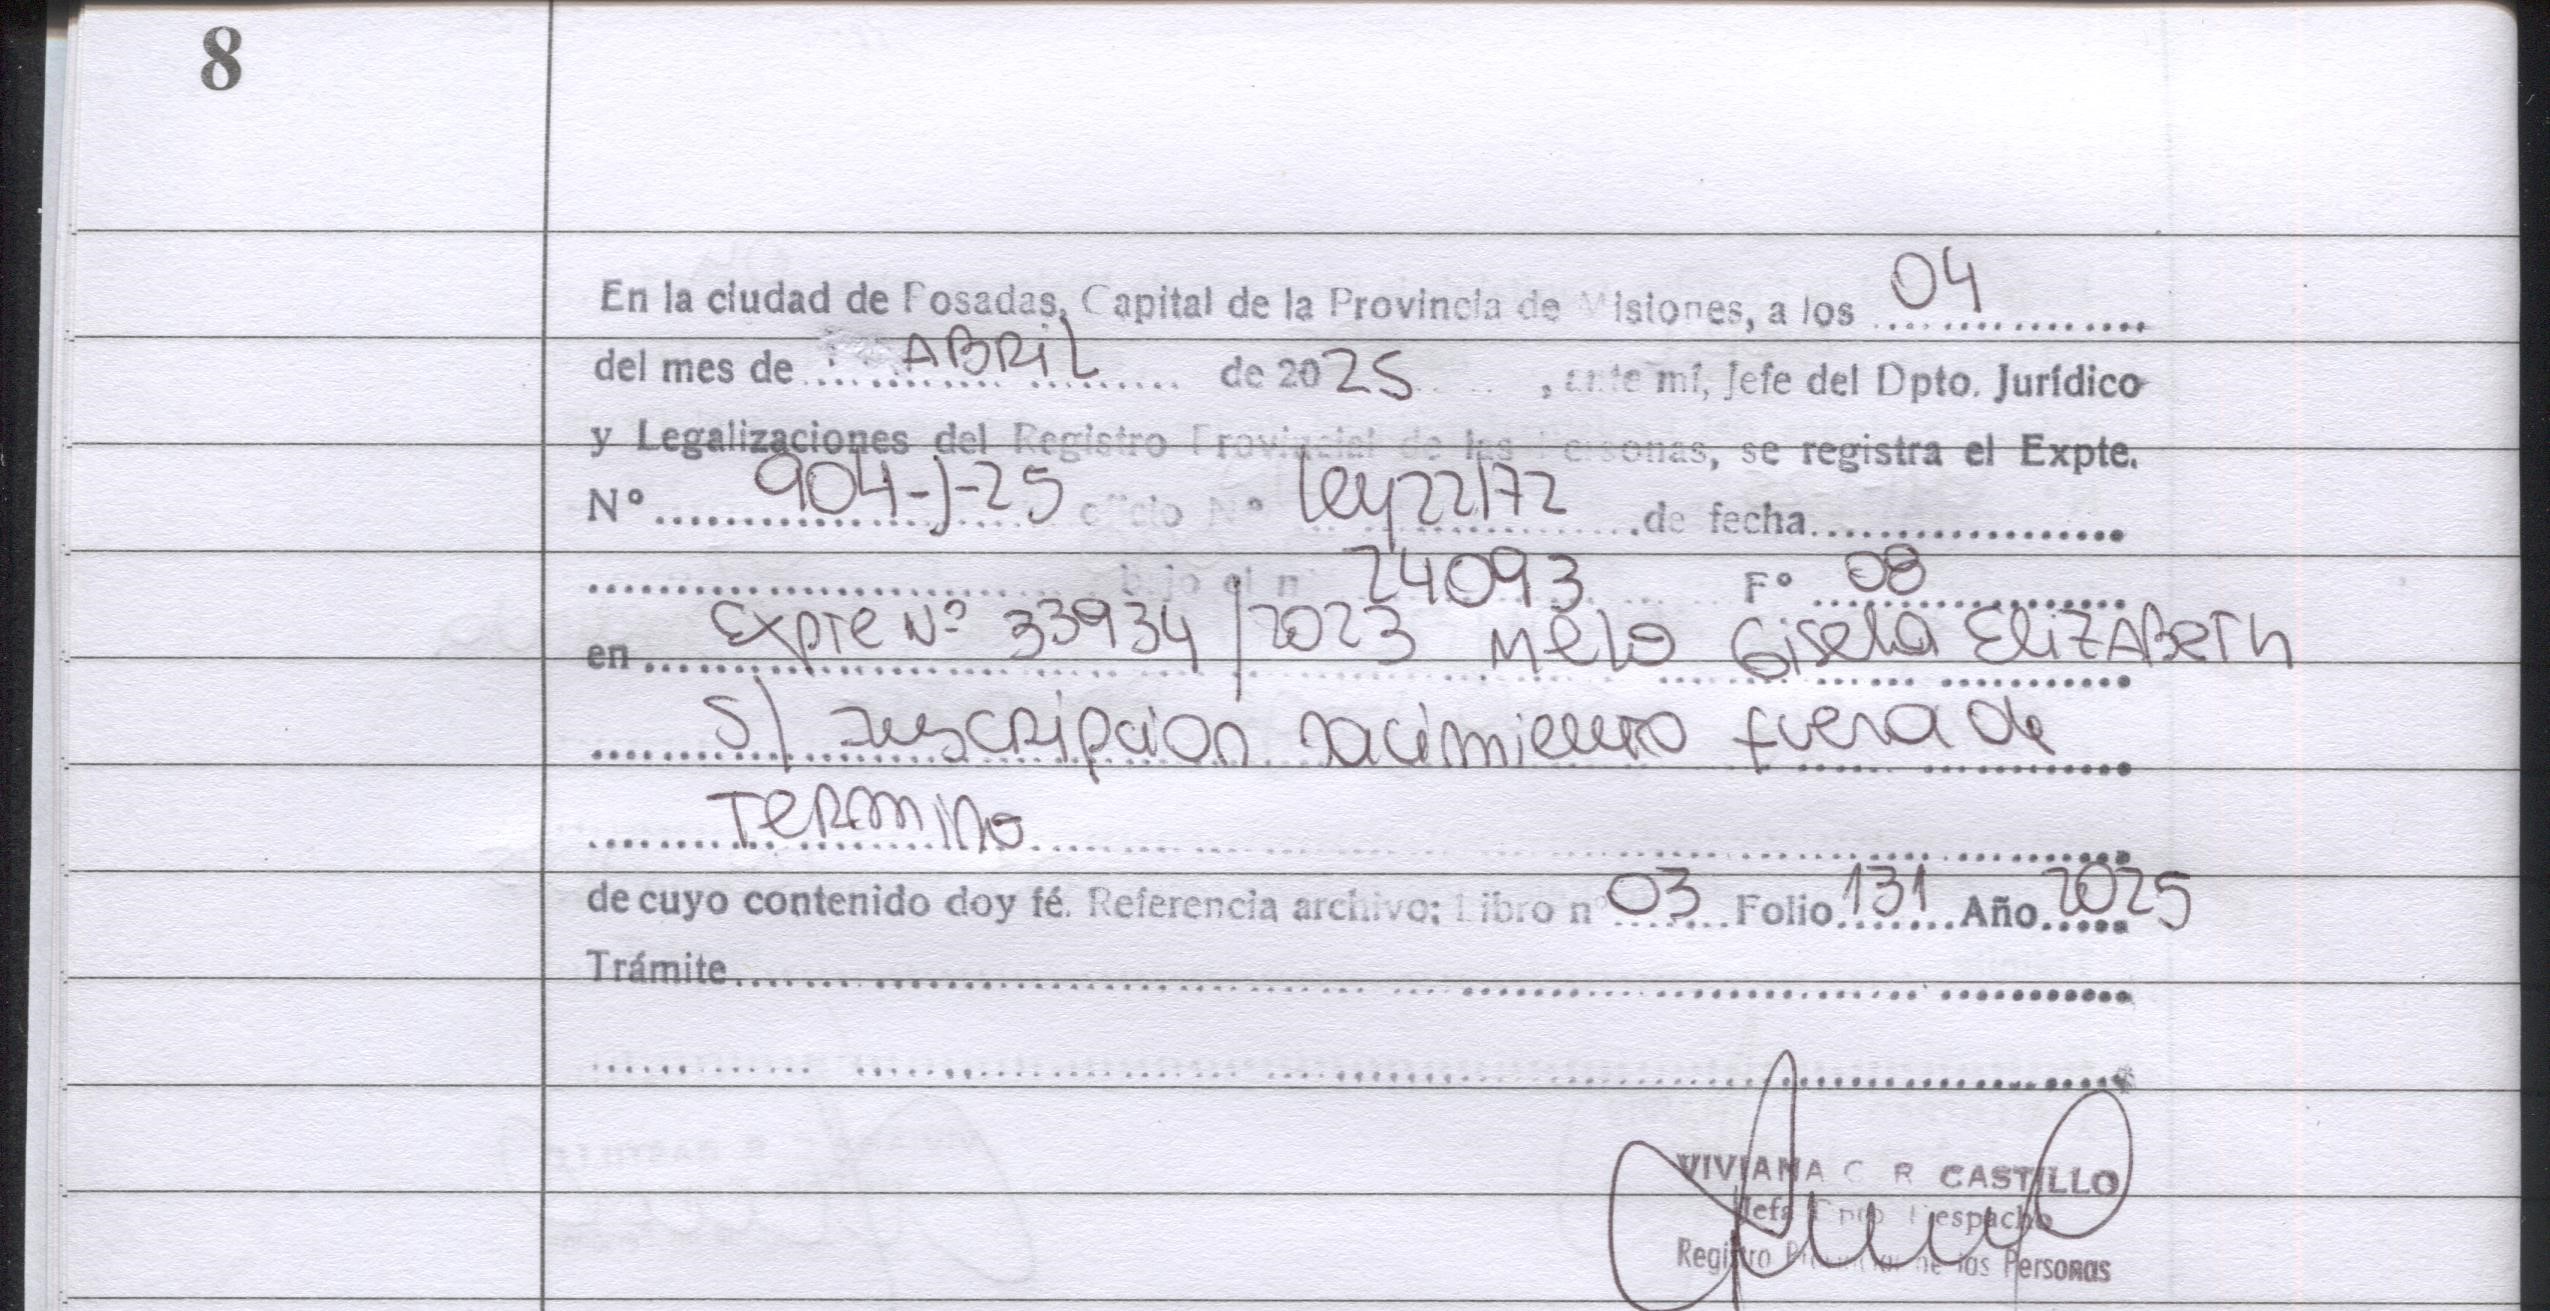 8
En la ciudad de Posadas, Capital de la Provincia de Misiones, a los 04
del mes de ABRIL de 2025, ante mí, Jefe del Dpto. Jurídico
y Legalizaciones del Registro Provincial de las Personas, se registra el Expte.
N° 904-J-25 oficio N° Ley 22172 de fecha
bajo el n° 24093 F° 08
en Expte Nº 33934/2023 Melo Gisela ElizABeth
S/ Inscripcion nacimiento fuera de
Termino
de cuyo contenido doy fé. Referencia archivo: Libro n° 03 Folio 131 Año 2025
Trámite
VIVIANA C R CASTILLO
Jefa Dpto Despacho
Registro Provincial de las Personas